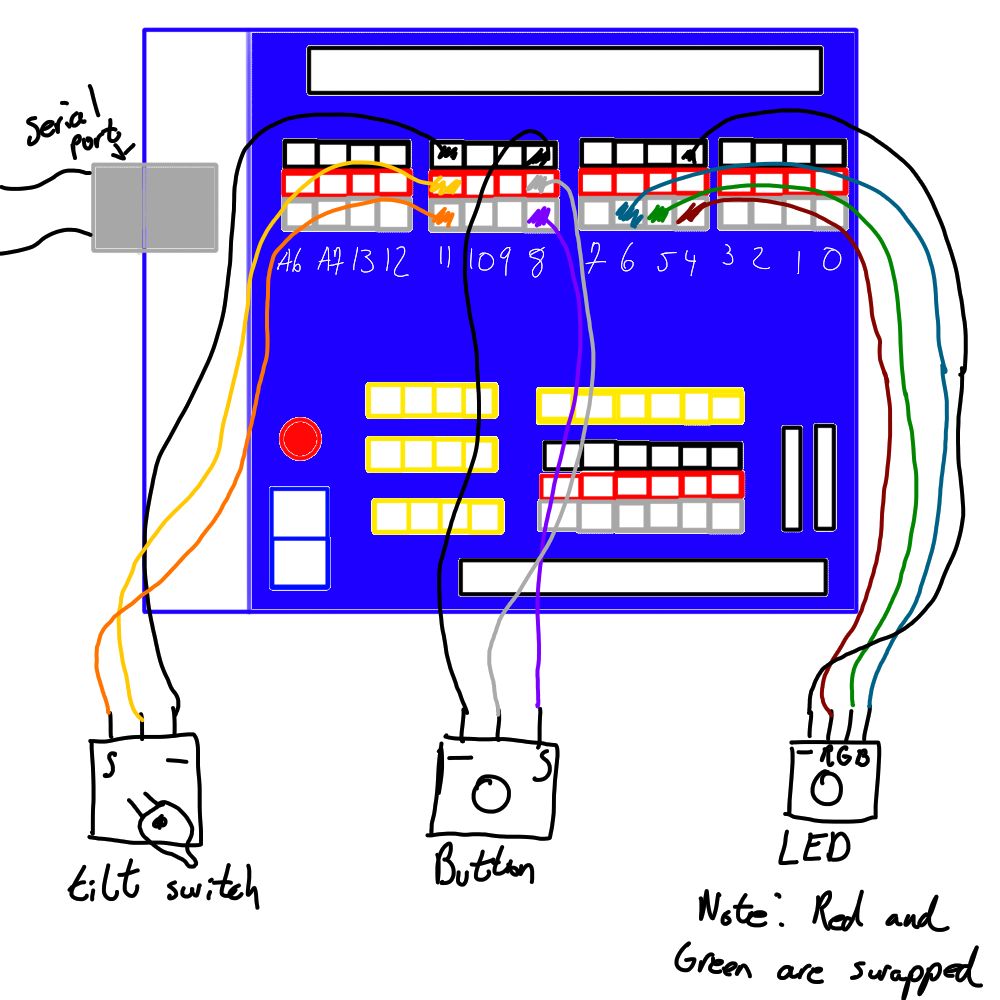 Serial
port
A6 A7 13 12 11 10 9 8 7 6 5 4 3 2 1 0
S -
- S
- R G B
tilt switch
Button
LED
Note: Red and
Green are swapped